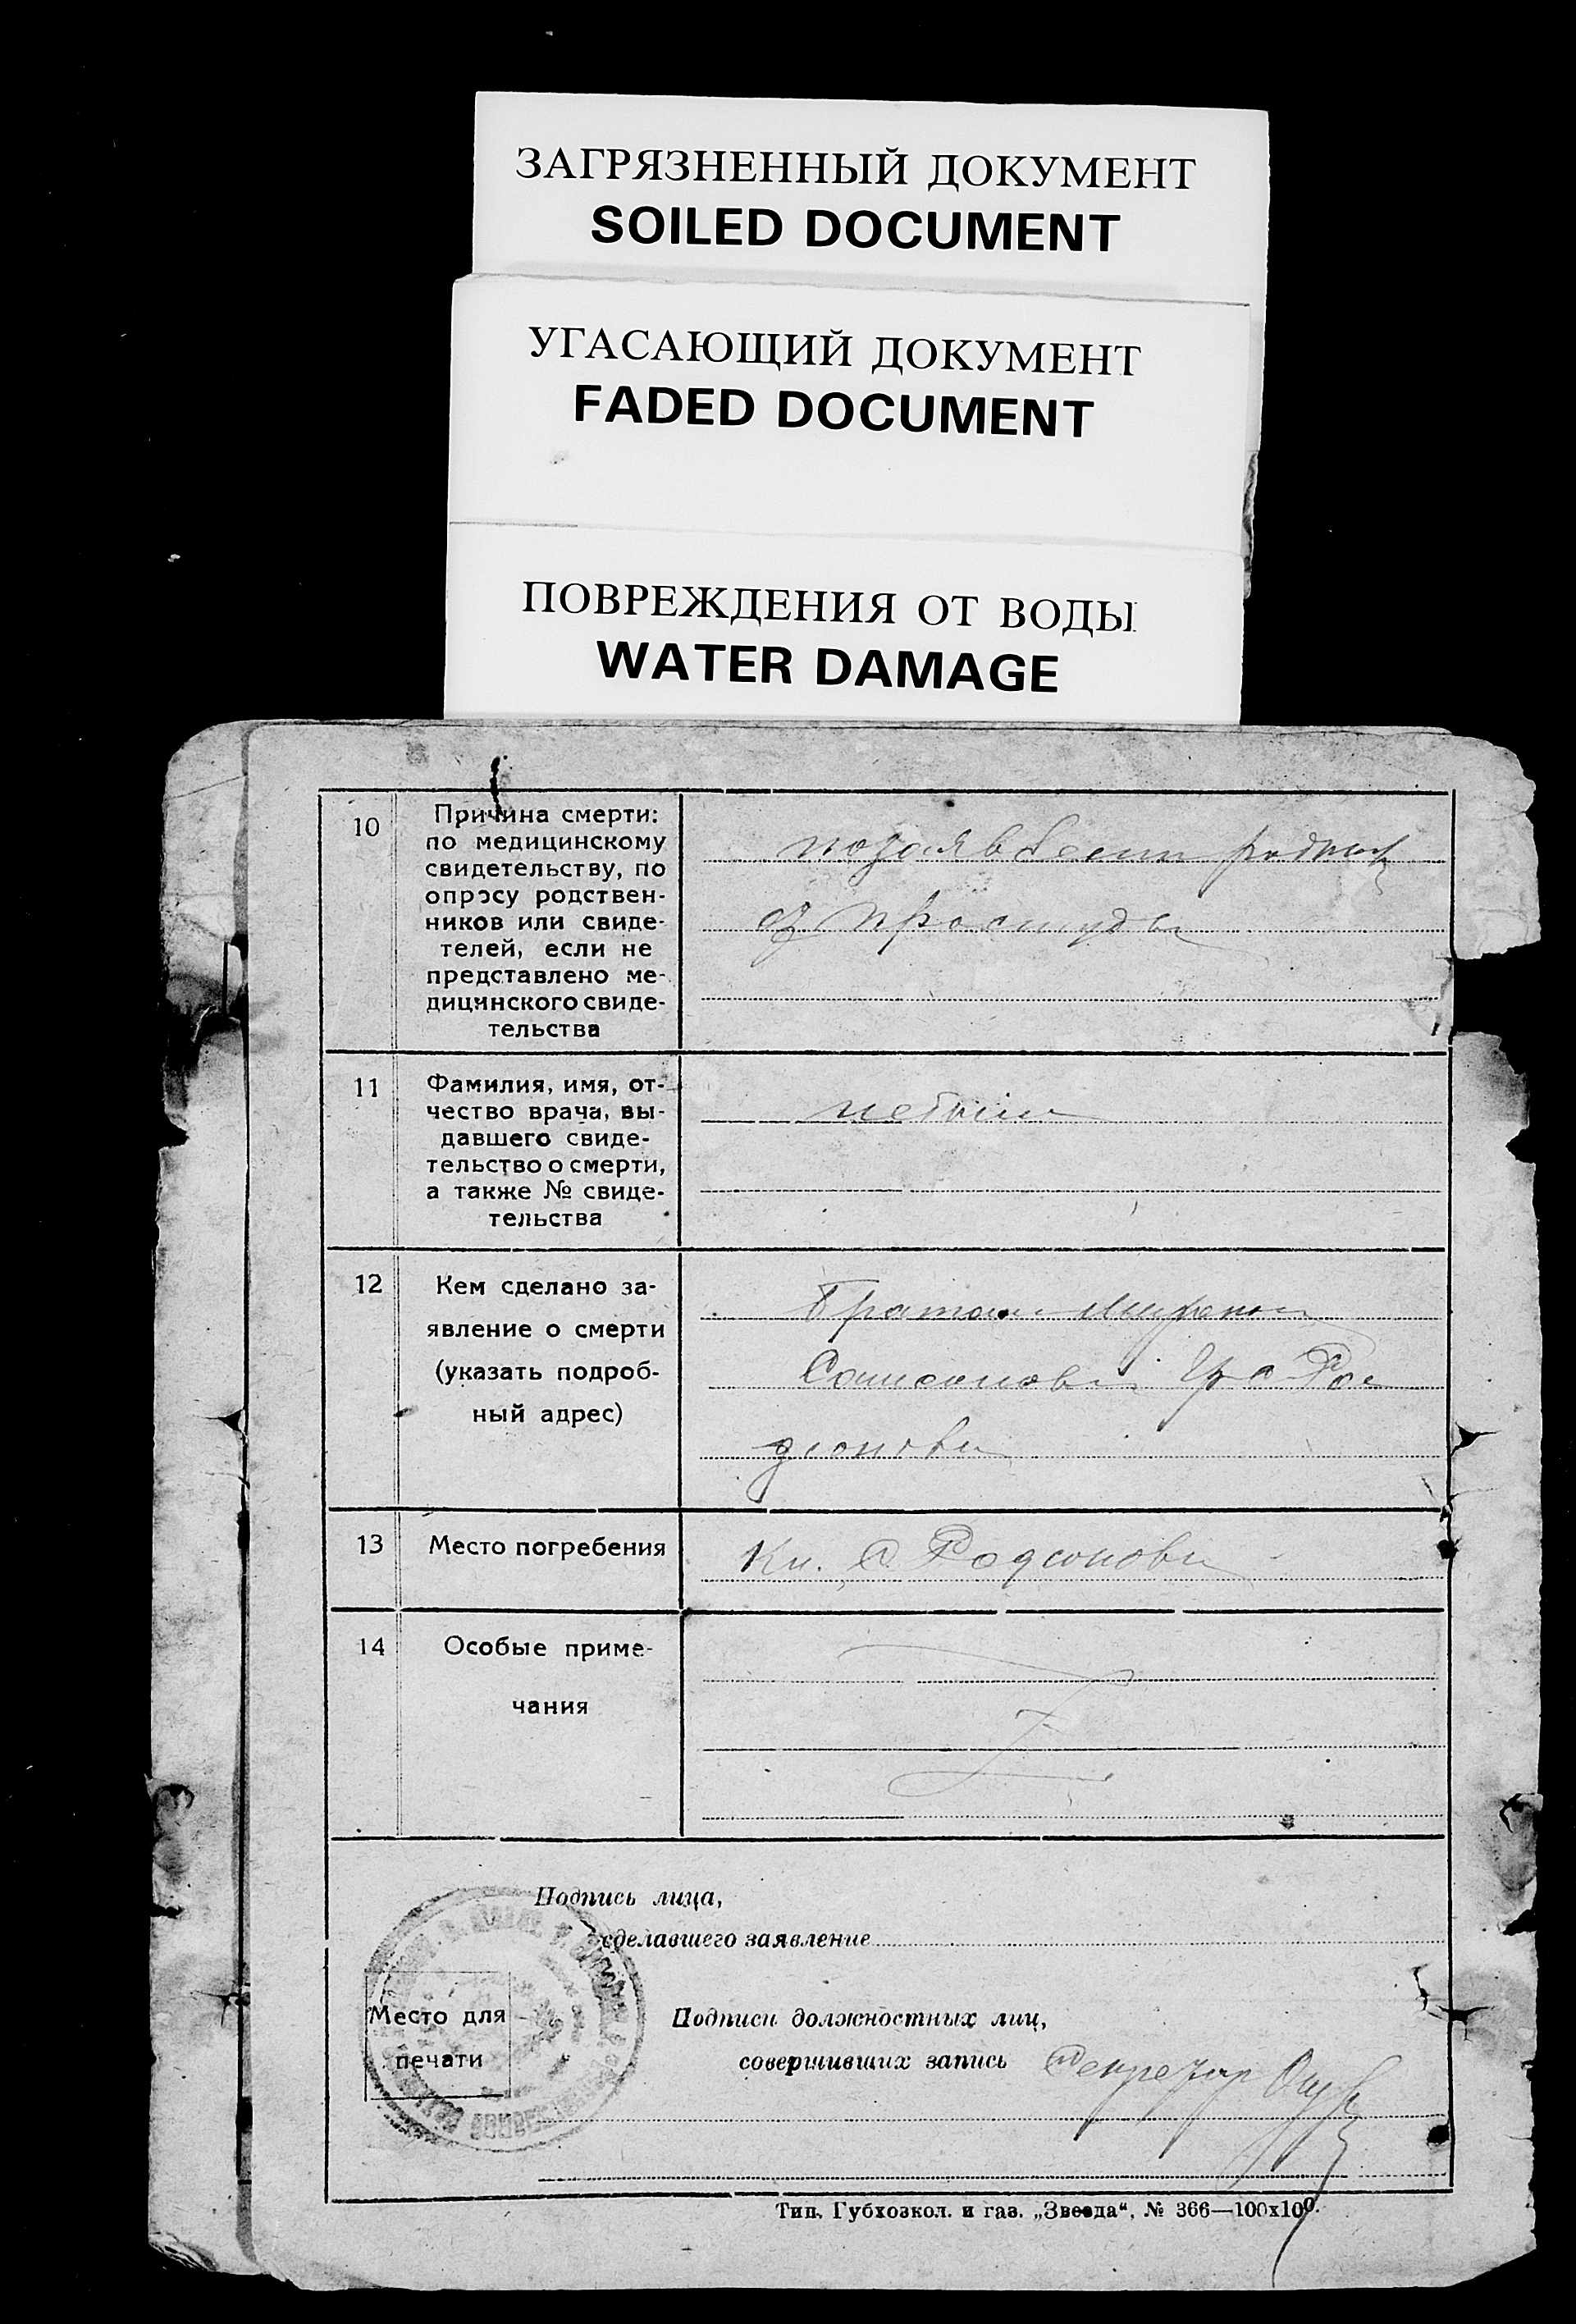 ЗАГРЯЗНЕННЫЙ ДОКУМЕНТ
SOILED DOCUMENT
УГАСАЮЩИЙ ДОКУМЕНТ
FADED DOCUMENT
ПОВРЕЖДЕНИЯ ОТ ВОДЫ
WATER DAMAGE
10
Причина смерти:
по медицинскому
свидетельству, по
опросу родствен-
ников или свиде-
телей, если не
представлено ме-
дицинского свиде-
тельства
от простуды
11
Фамилия, имя, от-
чество врача, вы-
давшего свиде-
тельство о смерти,
а также № свиде-
тельства
12
Кем сделано за-
явление о смерти
(указать подроб-
ный адрес)
Братом
13
Место погребения
Кл. с. Родионовки
14
Особые приме-
чания
Подпись лица,
сделавшего заявление
Место для
печати
Подписи должностных лиц,
совершивших запись Секретарь
Тип. Губхозкол. и газ. „Звезда“, № 366—100х100.